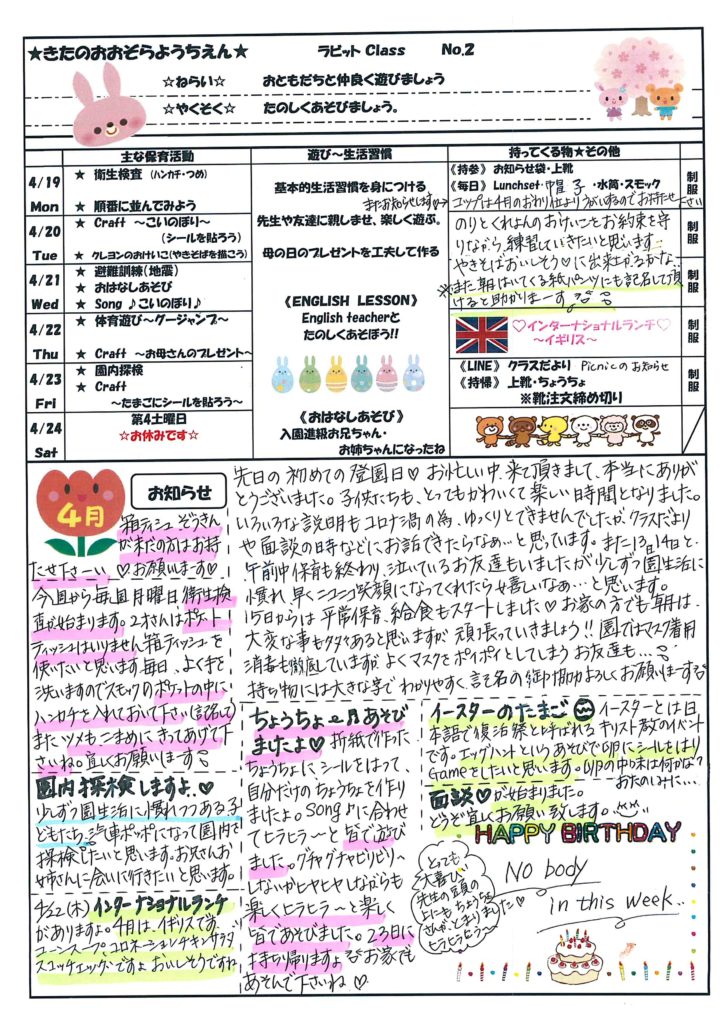 ★きたのおおぞらようちえん★ ラビット Class No.2
☆ねらい☆ おともだちと仲良く遊びましょう
☆やくそく☆ たのしくあそびましょう。
主な保育活動 遊び～生活習慣 持ってくる物★その他
4/19 Mon
★ 衛生検査 (ハンカチ・つめ)
★ 順番に並んでみよう
4/20 Tue
★ Craft ～こいのぼり～
(シールを貼ろう)
★ クレヨンのおけいこ(やきそばを描こう)
4/21 Wed
★ 避難訓練(地震)
★ おはなしあそび
★ Song ♪こいのぼり♪
4/22 Thu
★ 体育遊び～グージャンプ～
★ Craft ～お母さんのプレゼント～
4/23 Fri
★ 園内探検
★ Craft
～たまごにシールを貼ろう～
4/24 Sat
第4土曜日
☆お休みです☆
基本的生活習慣を身につける
先生や友達に親しませ、楽しく遊ぶ。
母の日のプレゼントを工夫して作る
《ENGLISH LESSON》
English teacherと
たのしくあそぼう!!
《おはなしあそび》
入園進級お兄ちゃん・
お姉ちゃんになったね
《持参》 お知らせ袋・上靴
《毎日》 Lunchset・帽子・水筒・スモック
またお知らせします
コップは4月のおわり位よりうがいするのでお持たせ下さい
のりとくれよんのおけいこもお約束を守
りながら、練習していきたいと思います。
やきそばおいしそう♡に出来上がるかな…
※また朝はいてくる紙パンツにも記名して頂
けると助かりまーす
♡インターナショナルランチ♡
～イギリス～
《LINE》 クラスだより Picnicのお知らせ
《持帰》 上靴・ちょうちょ
※靴注文締め切り
制服
制服
制服
制服
制服
4月
お知らせ
箱ティシュ ぞうきん
が未だの方はお持
たせ下さーい ♡お願います♡
今週から毎週月曜日衛生検
査が始まります。2才さんはポケット
ティッシュはいりません 箱ティッシュを
使いたいと思います 毎日、よく手を
洗いますのでスモックのポケットの中に
ハンカチを入れておいて下さい(記名して)
また ツメもこまめに きってあげて下
さいね。宜しくお願います
先日の初めての登園日♡ お忙しい中、来て頂きまして、本当にありが
とうございました。子供たちも、とってもかわいくて楽しい日時間となりました。
いろいろな説明もコロナ渦の為、ゆっくりとできませんでしたが、クラスだより
や面談の時などにお話できたらなぁ…と思っています。また13日14日と、
午前中保育も終わり、泣いているお友達もいましたが少しずつ園生活に
慣れ、早くニコニコ笑顔になってくれたら嬉しいなぁ…と思います。
15日からは 平常保育、給食もスタートしました♡ お家の方でも朝は、
大変な事も多々あると思いますが 頑張っていきましょう!! 園ではマスク着用
消毒も徹底していますが、よくマスクをポイポイとしてしまう お友達も…
持ち物には大きな字で わかりやすく、記名の御協力よろしくお願いまーす
園内探検しますよ♡
少しずつ園生活に慣れつつある子
どもたち。汽車ポッポになって園内を
探検したいと思います。お兄さんお
姉さんに会いに行きたいと思います。
4/22(木) インターナショナルランチ
がありますよ。4月は、イギリスです
コーンスープ、コロネーションチキンサラダ
スコッチエッグですよ おいしそうですね
ちょうちょ
あそび
ましたよ♡ 折紙で作った
ちょうちょに シールをはって、
自分だけのちょうちょを作り
ましたよ。Song♪に合わせ
てヒラヒラ～と 皆で遊び
ました。グチャグチャビリビリ～
しないかヒヤヒヤしながらも
楽しくヒラヒラ～と楽しく
皆であそびました。23日に
持ち帰りますよ お家でも
あそんで下さいね♡
とっても
大喜び、
先生の豆頁の
上にもちょうちょ
さんがとまりました
ヒラヒラヒラ～
イースターのたまご イースターとは日
本語で復活祭と呼ばれる キリスト教のイベント
です。エッグハントというあそびでcupにシールをはり
Gameをしたいと思います。cupの中味は何かな?
おたのしみに…
面談♡が始まりました。
どうぞ宜しくお願い致します。
HAPPY BIRTHDAY
NO body
in this week..